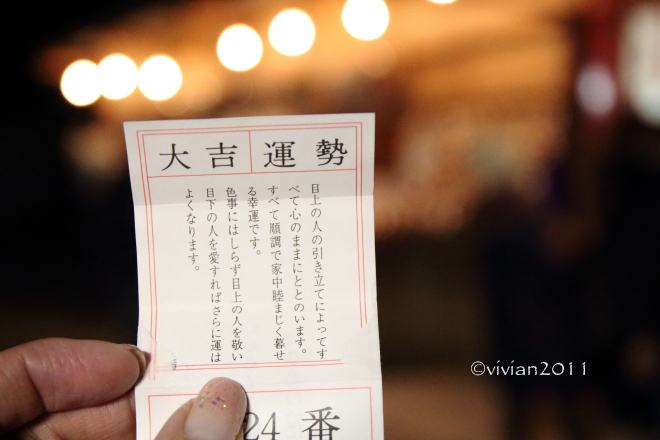 大吉 運勢
目上の人の引き立てによってす
べて心のままにととのいます。
すべて順調で家中睦まじく暮せ
る幸運です。
色事にはしらず目上の人を敬い
目下の人を愛すればさらに運は
よくなります。
24 番
©vivian2011